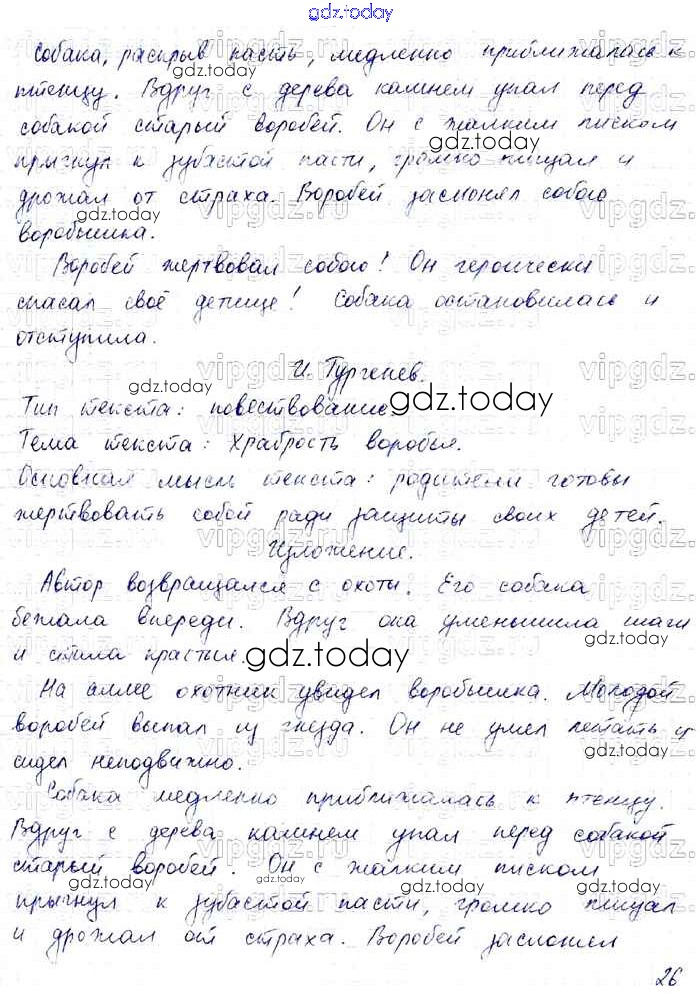 gdz.today
Собака, раскрыв пасть, медленно приближалась к
птенцу. Вдруг с дерева камнем упал перед
собакой старый воробей. Он с жалким писком
прыгнул к зубастой пасти, громко пищал и
дрожал от страха. Воробей заслонял собою
воробьишка.
Воробей жертвовал собою! Он героически
спасал своё детище! Собака остановилась и
отступила.
И. Тургенев.
Тип текста: повествование.
Тема текста: храбрость воробья.
Основная мысль текста: родители готовы
жертвовать собой ради защиты своих детей.
Изложение.
Автор возвращался с охоты. Его собака
бежала впереди. Вдруг она уменьшила шаги
и стала красться.
На аллее охотник увидел воробьишка. Молодой
воробей выпал из гнезда. Он не умел летать и
сидел неподвижно.
Собака медленно приближалась к птенцу.
Вдруг с дерева камнем упал перед собакой
старый воробей. Он с жалким писком
прыгнул к зубастой пасти, громко пищал
и дрожал от страха. Воробей заслонял
26